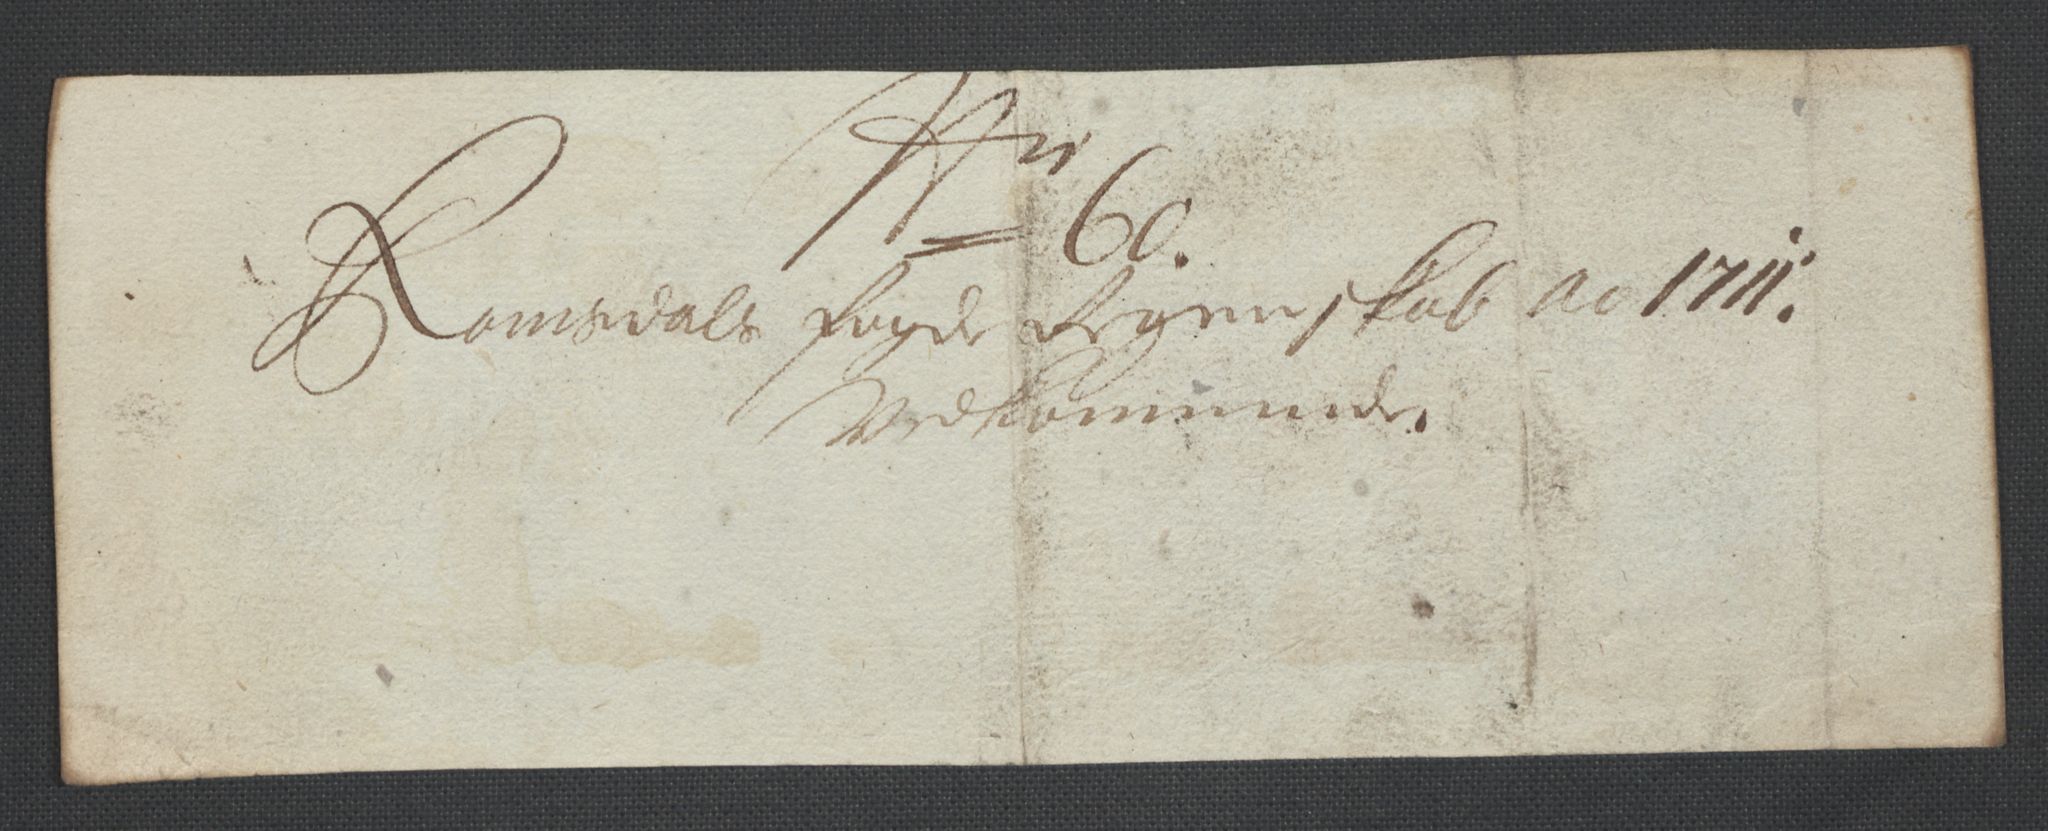 No 60.
Romsdals fogde Regenskab ao 1711.
Vedkommende.